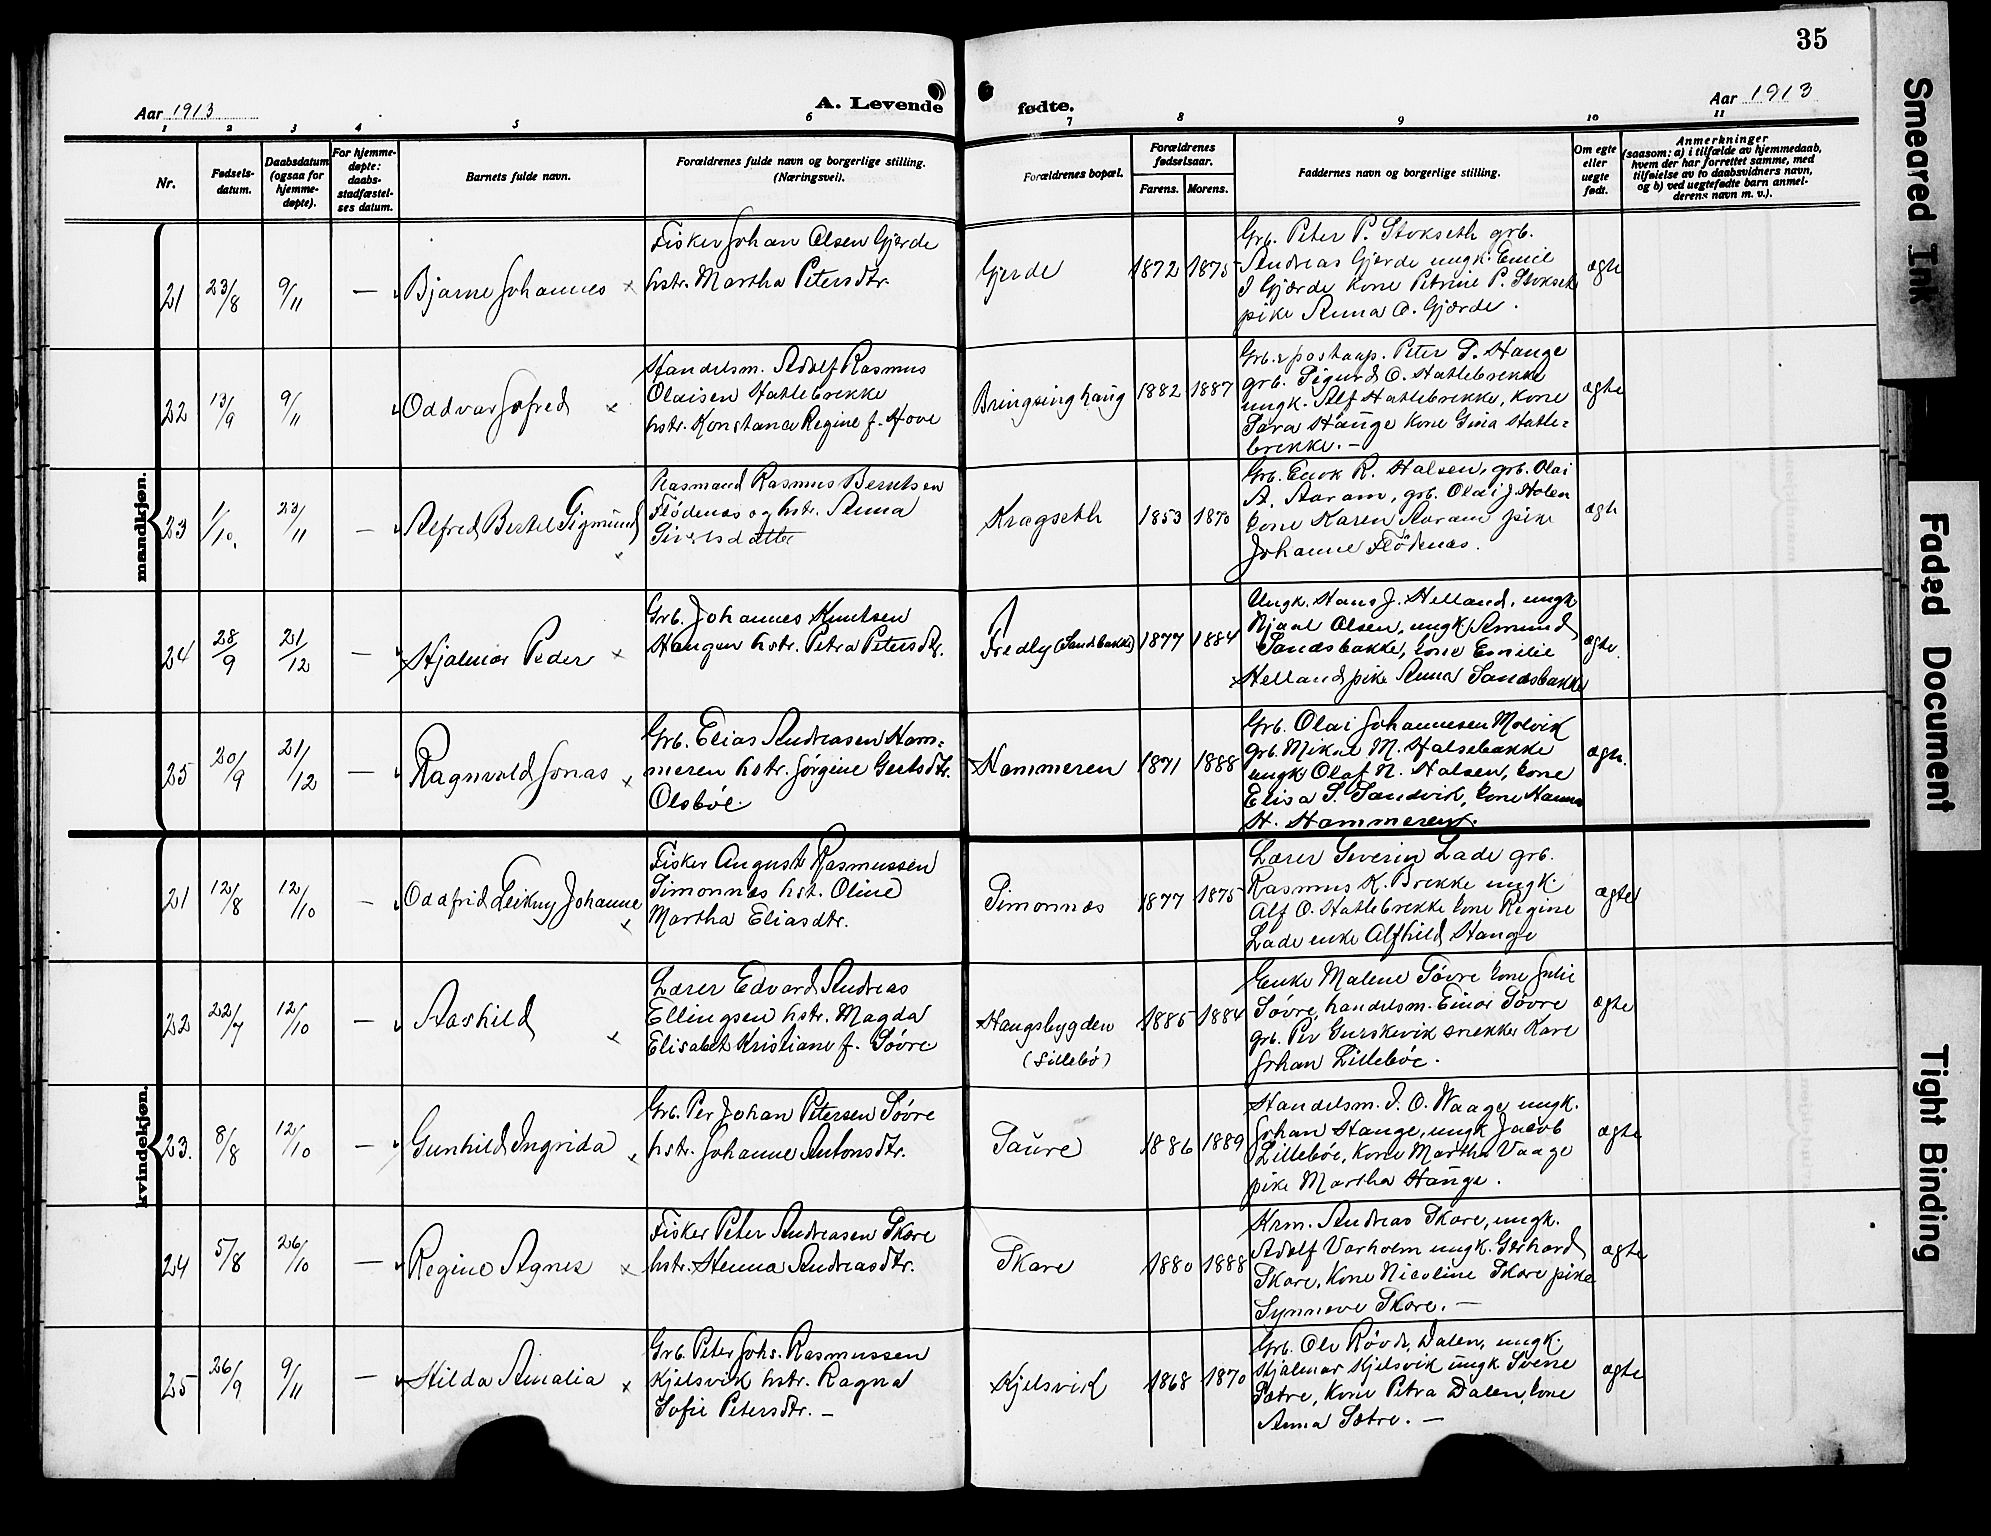 35
Aar 1913
A. Levende fødte.
Aar 1913
1 2 3 4 5 6 7 8 9 10 11
Nr.
Fødsels-
datum.
Daabsdatum
(ogsaa for
hjemme-
døpte).
For hjemme-
døpte:
daabs-
stadfæstel-
ses datum.
Barnets fulde navn.
Forældrenes fulde navn og borgerlige stilling.
(Næringsvei).
Forældrenes bopæl.
Forældrenes
fødselsaar.
Farens. Morens.
Faddernes navn og borgerlige stilling.
Om egte
eller
uegte
født.
Anmerkninger
(saasom: a) i tilfælde av hjemmedaab,
hvem der har forrettet samme, med
tilføielse av to daabsvidners navn,
og b) ved uegtefødte barn anmel-
derens navn m. v.).
mandkjøn.
21 23/8 9/11 — Bjarne Johannes ×
Fisker Johan Olsen Gjerde
hstr. Martha Petersdtr.
Gjerde 1872 1875
Grb. Peter P. Stokseth grb.
Andreas Gjerde ungk. Emil
J Gjærde kone Petrine P. Stokseth
pike Anna O. Gjærde.
ægte
22 13/9 9/11 Oddvar Jofred ×
Handelsm. Adolf Rasmus
Olaisen Hatlebrekke
hstr. Konstance Regine f. Hove
Bringsinghaug 1882 1887
Grb. & postaap. Peter P. Hauge
grb. Sigurd O. Hatlebrekke
ungk. Alf Hatlebrekke, kone
Sara Hauge kone Gina Hatle=
brekke. —
ægte
23 1/10. 23/11 — Alfred Bertel Sigmund ×
Rasmand Rasmus Berntsen
Flødenas og hstr. Anna
Sivertsdatter
Kragseth 1853 1870
Grb. Enok R. Halsen, grb. Olai
A. Aaram, grb. Olai J. Holen
kone Karen Aaram pike
Johanne Flødenas.
ægte
24 28/9 21/12 — Hjalmar Peder ×
Grb. Johannes Knutsen
Haugen hstr. Petra Petersdtr.
Fredly (Sandsbakke) 1877 1884
Ungk. Hans J. Helland, ungk
Njaal Olsen, ungk. Amund
Sandsbakke, kone Emilie
Helland pike Anna Sandsbakke
ægte.
25 20/9 21/12 — Ragnvald Jonas ×
Grb. Elias Andreasen Ham=
meren hstr. Jørgine Gertsdtr.
Olsbøe.
Hammeren 1871 1888
Grb. Olai Johannesen Molvik
grb. Mikal M. Halsebakke
ungk Olaf N. Halsen, kone
Elisa S. Sandvik, kone Hanna
H. Hammeren.
ægte.
kvindekjøn.
21 12/8 12/10 — Oddfrid Leikny Johanne ×
Fisker August Rasmussen
Simonnæs hst. Oline
Martha Eliasdtr.
Simonnæs 1877 1875
Lærer Severin Lade grb.
Rasmus K. Brekke ungk.
Alf O. Hatlebrekke kone Regine
Lade enke Alfhild Hauge
ægte
22 22/7 12/10 — Aashild ×
Lærer Edvard Andreas
Ellingsen hstr. Magda
Elisabet Kristiane f. Søvre
Haugsbygden
(Lillebø)
1885 1884
Enke Malene Søvre kone Julie
Søvre, handelsm. Einar Søvre
grb. Per Gurskevik snekker Kare
Johan Lillebøe.
ægte
23. 8/8 12/10 — Gunhild Ingrida ×
Grb. Per Johan Petersen Søvre
hstr. Johanne Antonsdtr.
Saure 1886 1889
Handelsm. J. O. Waage ungk.
Johan Hauge, ungk Jacob
Lillebøe, kone Martha Vaage
pike Martha Hauge.
ægte
24 5/8 26/10 — Regine Agnes ×
Fisker Peter Andreasen Skare
hstr. Henna Andreasdtr.
Skare 1880 1888
Krm. Andreas Skare, ungk.
Adolf Varholm ungk. Gerhard
Skare, kone Nicoline Skare pike
Synneve Skare. —
ægte
25 26/9 9/11 — Hilda Amalia ×
Grb. Peter Johs. Rasmussen
Kjelsvik hstr. Ragna
Sofie Petersdtr. —
Kjelsvik 1868 1870
Grb. Ole Røvde Dalen, ungk.
Hjalmar Kjelsvik ungk Svene
Sætre, kone Petra Dalen, kone
Anna Sætre. —
ægte
Smeared Ink
Faded Document
Tight Binding